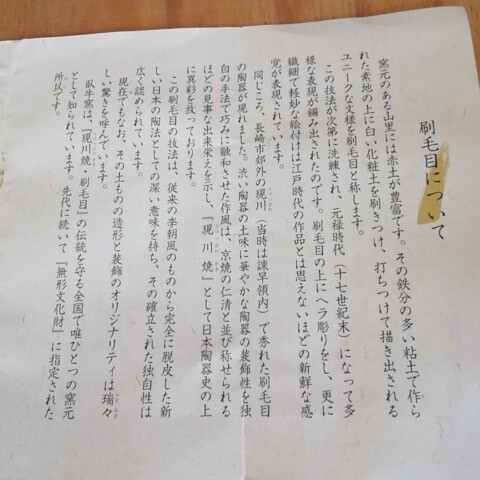 刷毛目について
窯元のある山里には赤土が豊富です。その鉄分の多い粘土で作ら
れた素地の上に白い化粧土を刷きつけ、打ちつけて描き出される
ユニークな文様を刷毛目と称します。
この技法が次第に洗練され、元禄時代（十七世紀末）になって多
様な表現が編み出されたのです。刷毛目の上にヘラ彫りをし、更に
繊細で軽妙な絵付けは江戸時代の作品とは思えないほどの新鮮な感
覚が表現されています。
同じころ、長崎市郊外の現川（当時は諫早領内）で秀れた刷毛目
の陶器が現れました。渋い陶器の土味に華やかな陶器の装飾性を独
自の手法で巧みに融和させた作風は、京焼の仁清と並び称せられる
ほどの見事な出来栄えを示し、『現川焼』として日本陶器史の上
に異彩を放っております。
この刷毛目の技法は、従来の李朝風のものから完全に脱皮した新
しい日本の陶法としての深い意味を持ち、その確立された独自性は
広く認められています。
現在でもなお、その土ものの造形と装飾のオリジナリティは瑞々
しい驚きを呼んでいます。
臥牛窯は、『現川焼・刷毛目』の伝統を守る全国で唯ひとつの窯元
として知られています。先代に続いて『無形文化財』に指定された
所以です。